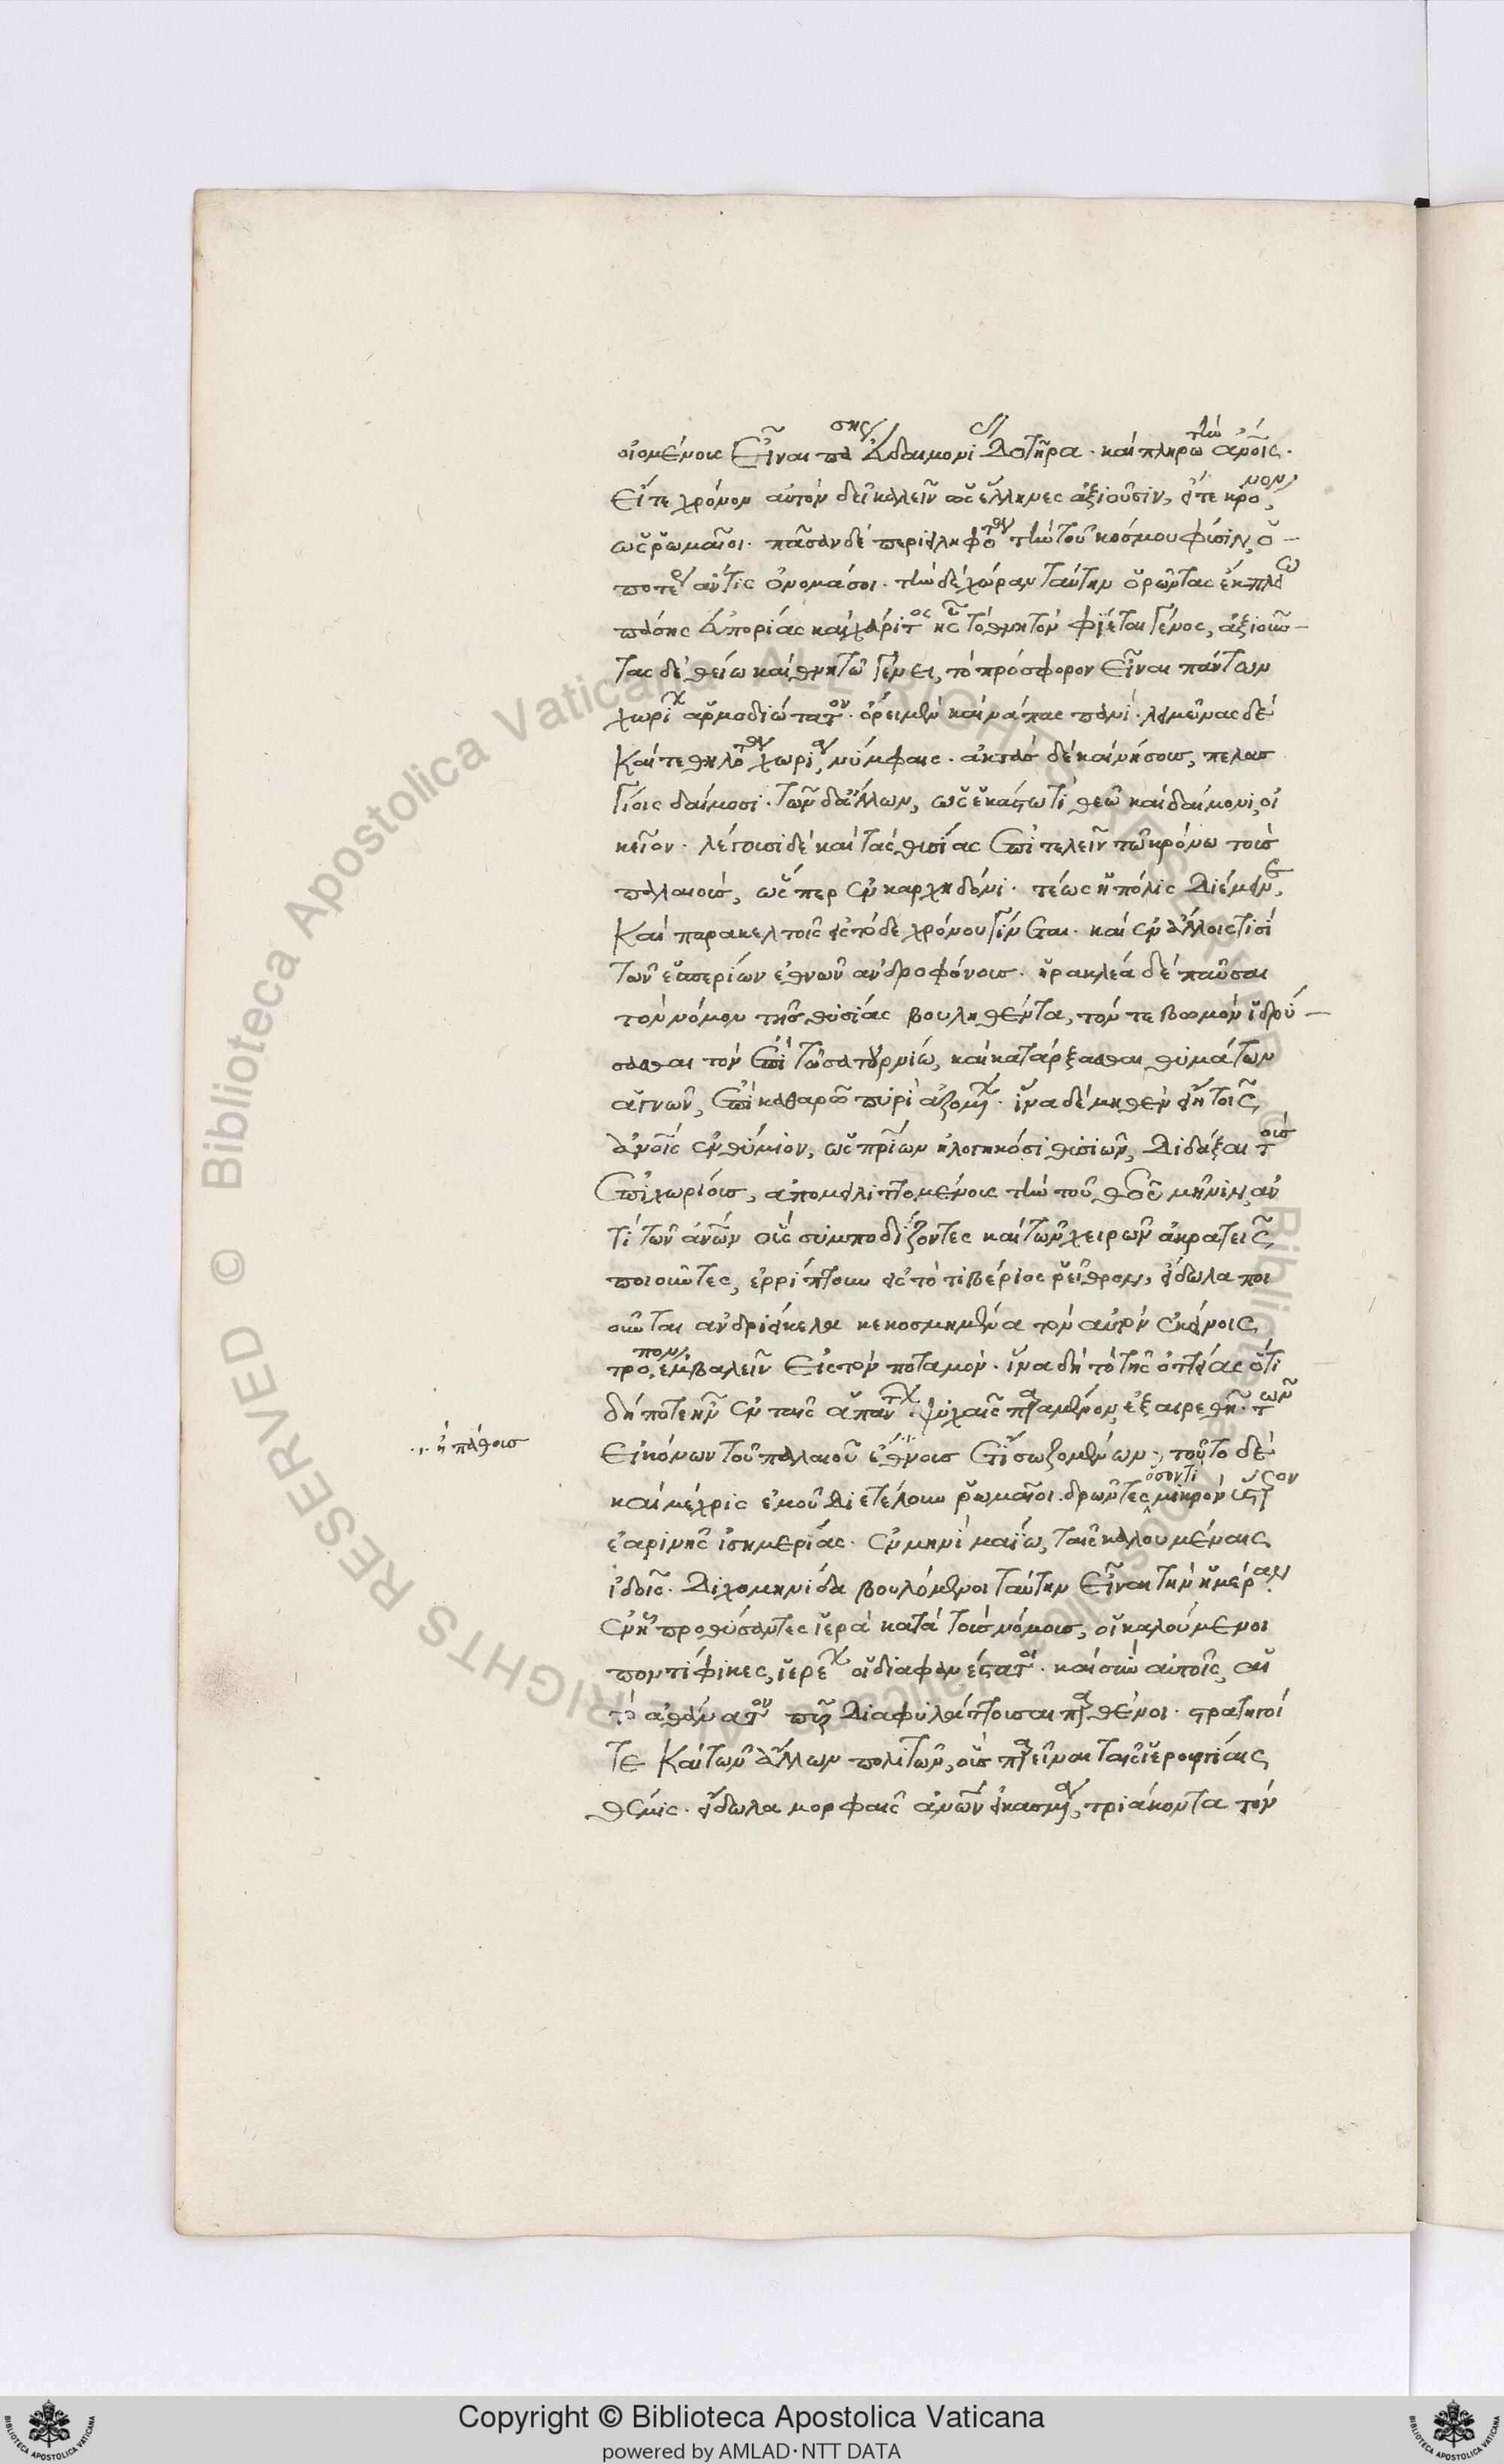 οἰομένους εἶναι πάσης εὐδαιμονίας δοτῆρα. καὶ πληρωτὴν ἀνοις.
εἴτε χρόνον αὐτὸν δεῖ καλεῖν ὡς ἕλληνες ἀξιοῦσιν, εἴτε κρόνον,
ὡς ῥωμαῖοι. πᾶσαν δὲ περιειληφότα τὴν τοῦ κόσμου φύσιν, ὁ-
πότερον ἄν τις ὀνομάσοι. τὴν δὲ χώραν ταύτην ὁρῶντας ἔκπλεω
πάσης εὐπορίας καὶ χάριτος ἧς τὸ θνητὸν ἐφίεται γένος, ἀξιοῦν-
τας δὲ θείῳ καὶ θνητῷ γένει, τὸ πρόσφορον εἶναι πάντων
χωρίων ἁρμοδιώτατον. ὄρει μὲν καὶ νάπας πανί. λειμῶνας δὲ
καὶ τεθηλότα χωρία, νύμφαις. ἀκτὰς δὲ καὶ νήσους, πελα
γίοις δαίμοσι. τῶν δ' ἄλλων, ὡς ἑκάστῳ τί θεῷ καὶ δαίμονι, οἰ
κεῖον. λέγουσι δὲ καὶ τὰς θυσίας ἐπιτελεῖν τῷ κρόνῳ τοὺς
παλαιοὺς, ὥσπερ ἐν καρχηδόνι. τέως ἡ πόλις διέμεινε,
καὶ παρὰ κελτοῖς εἰς τόδε χρόνου γίνεται. καὶ ἐν ἄλλοις τισὶ
τῶν ἑσπερίων ἐθνῶν ἀνδροφόνους. ἡρακλέα δὲ παῦσαι
τὸν νόμον τῆς θυσίας βουληθέντα, τόν τε βωμὸν ἱδρύ-
σασθαι τὸν ἐπὶ τῷ σατουρνίῳ, καὶ κατάρξασθαι θυμάτων
ἁγνῶν, ἐπὶ καθαρῷ πυρὶ ἁγιζομένων. ἵνα δὲ μηθὲν εἴη τοῖς
ἀνοις ἐνθύμιον, ὡς πατρίων ἠλογηκόσι θυσιῶν, διδάξαι τοὺς
ἐπιχωρίους, ἀπομειλιττομένους τὴν τοῦ θεοῦ μῆνιν, ἀν
τὶ τῶν ἀνων οὓς συμποδίζοντες καὶ τῶν χειρῶν ἀκρατεῖς
ποιοῦντες, ἐρρίπτουν εἰς τὸ τιβέριος ῥεῖθρον, εἴδωλα ποι
οῦνται ἀνδρείκελα κεκοσμημένα τὸν αὐτὸν ἐκείνοις
τρόπον, ἐμβαλεῖν εἰς τὸν ποταμόν. ἵνα δὴ τὸ τῆς ὀττείας ὅτι
δήποτε ἦν ἐν ταῖς ἁπάντων ψυχαῖς παραμένον, ἐξαιρεθῇ. τῶν
εἰκόνων τοῦ παλαιοῦ ἔθνους ἔτι σωζομένων. τοῦτο δὲ
∴ ἢ πάθους
καὶ μέχρις ἐμοῦ διετέλουν ῥωμαῖοι δρῶντες ὅσον τι μικρὸν ὕστερον
ἐαρινῆς ἰσημερίας. ἐν μηνὶ μαΐῳ, ταῖς καλουμέναις
ἰδοῖς. διχομηνίδα βουλόμενοι ταύτην εἶναι τὴν ἡμέραν.
ἐν ᾗ προθύσαντες ἱερὰ κατὰ τοὺς νόμους, οἱ καλούμενοι
ποντίφικες, ἱερέων οἱ διαφανέστατοι. καὶ σὺν αὐτοῖς, αἱ
τὸ ἀθάνατον πῦρ διαφυλάττουσαι παρθένοι. στρατηγοί
τε καὶ τῶν ἄλλων πολιτῶν, οὓς παρεῖναι ταῖς ἱερουργίαις
θέμις. εἴδωλα μορφαῖς ἀνων εἰκασμένα, τριάκοντα τὸν